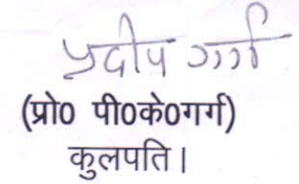 प्रदीप गर्ग
(प्रो0 पी0के0गर्ग)
कुलपति।